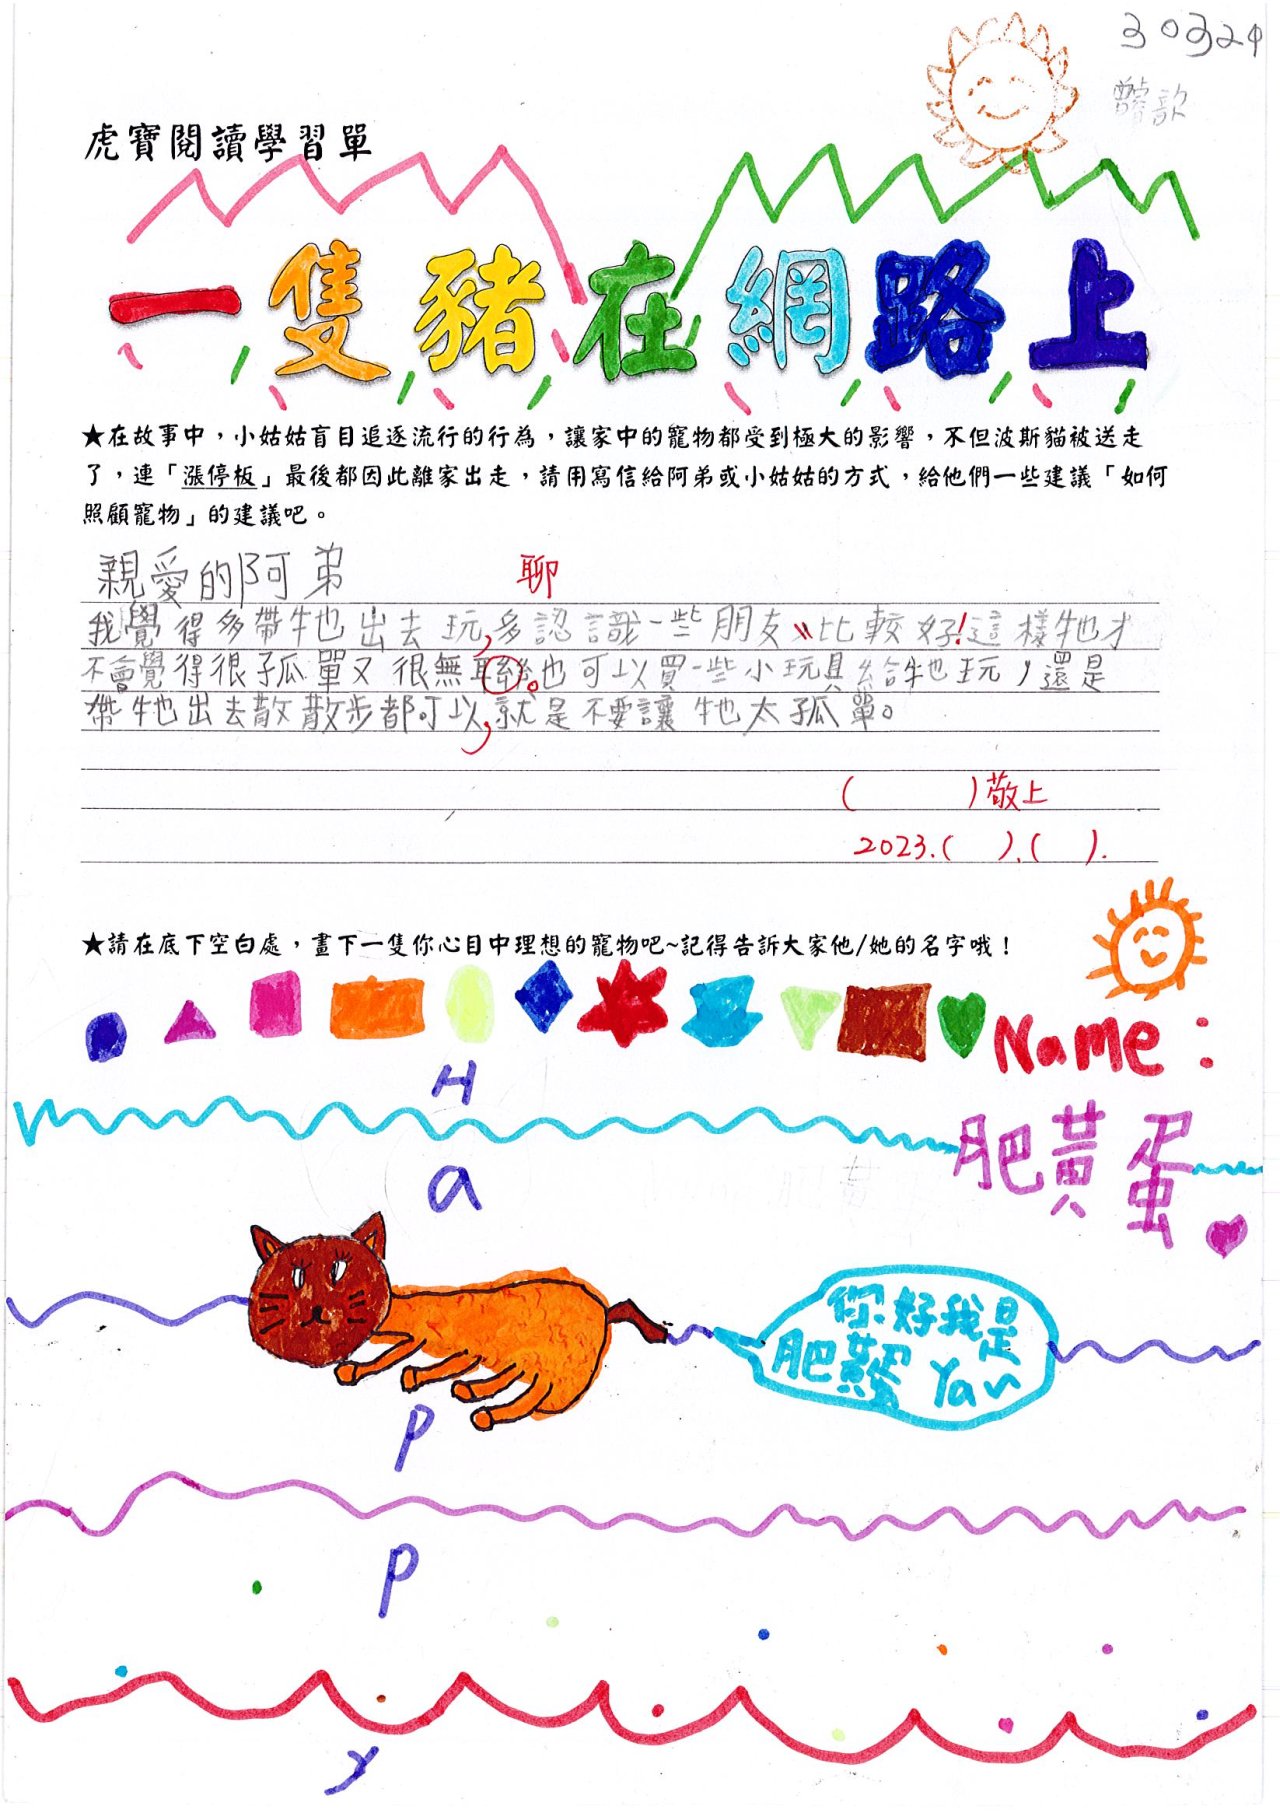 30324
歆
虎寶閱讀學習單
一隻豬在網路上
★在故事中，小姑姑盲目追逐流行的行為，讓家中的寵物都受到極大的影響，不但波斯貓被送走
了，連「漲停板」最後都因此離家出走，請用寫信給阿弟或小姑姑的方式，給他們一些建議「如何
照顧寵物」的建議吧。
親愛的阿弟
聊
我覺得多帶牠出去玩,多認識一些朋友比較好!這樣牠才
不會覺得很孤單又很無聯。也可以買一些小玩具給牠玩，還是
帶牠出去散散步都可以,就是不要讓牠太孤單。
( )敬上
2023.( ).( ).
★請在底下空白處，畫下一隻你心目中理想的寵物吧~記得告訴大家他/她的名字哦！
Name：
肥黃蛋
H
a
p
p
y
你好我是
肥黃蛋 Yan